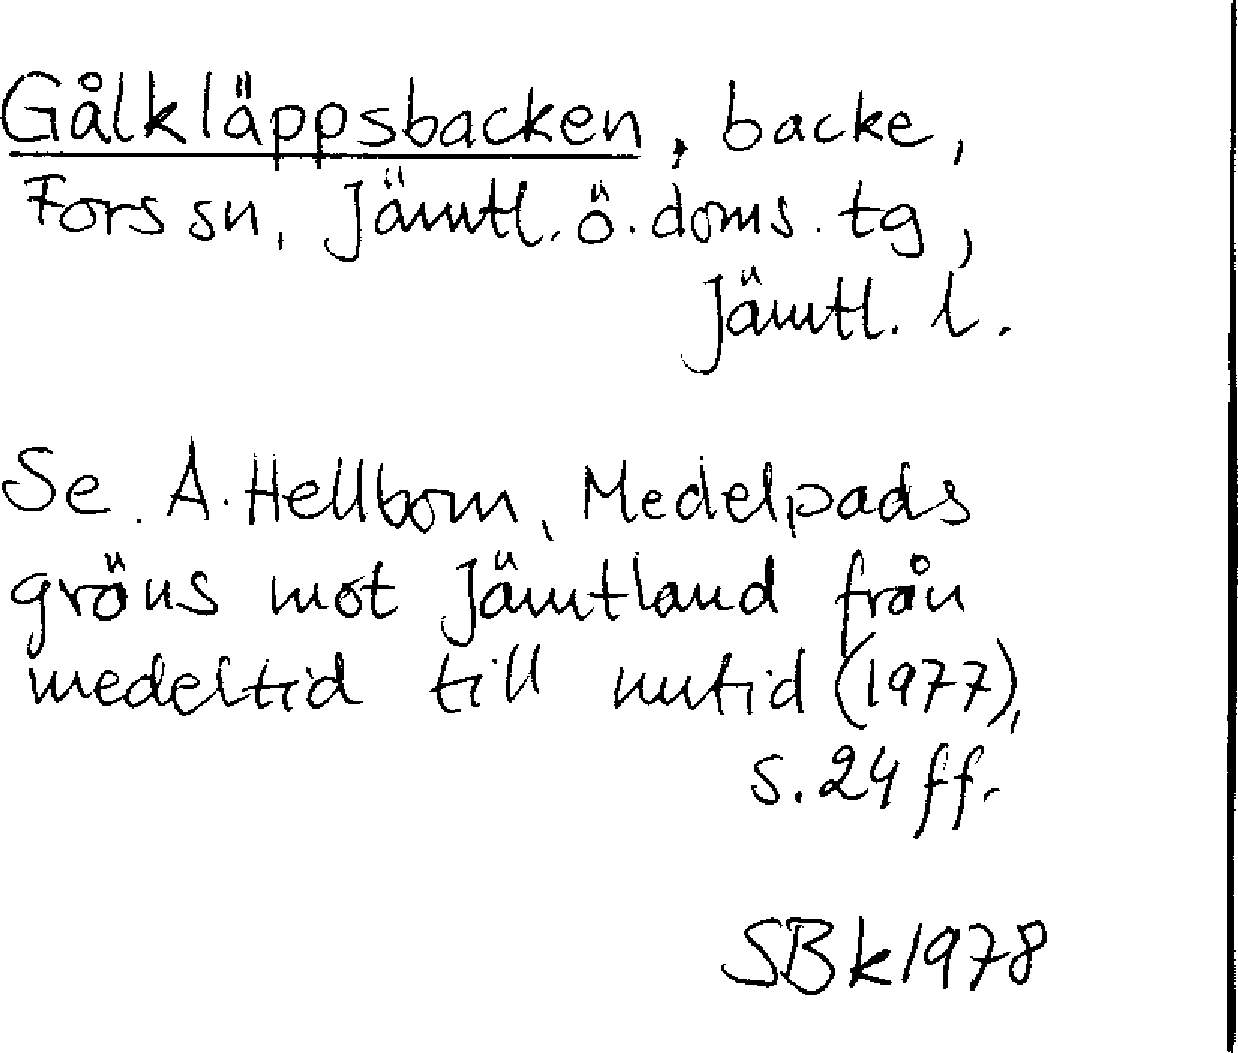 Gålkläppsbacken, backe,
Fors sn, Jämtl. ö. doms. tg,
Jämtl. l.
Se A. Hellbom, Medelpads
gräns mot Jämtland från
medeltid till nutid (1977),
s. 24 ff.
SBk 1978